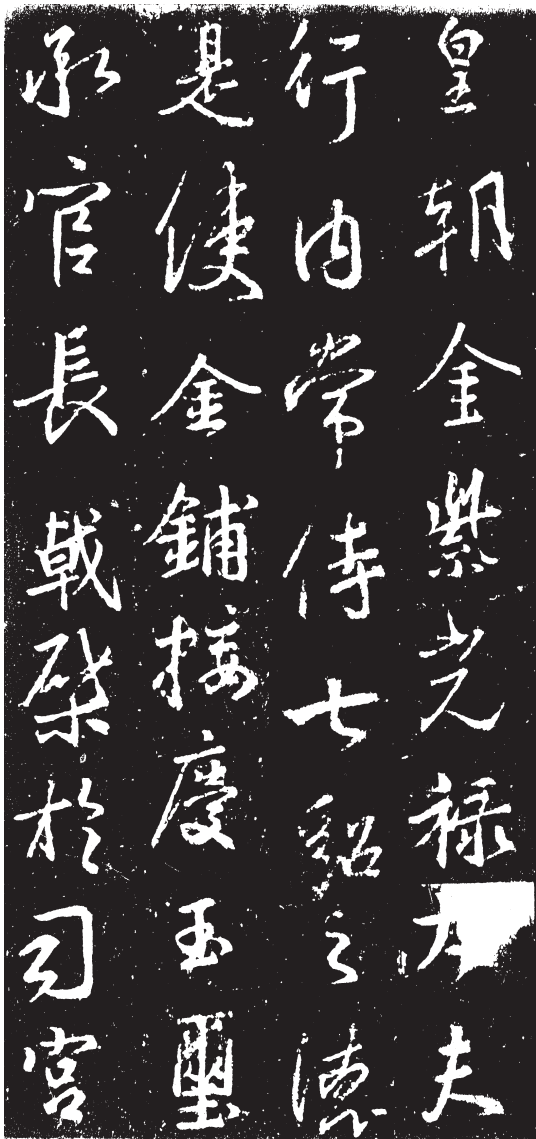 皇朝金紫光禄大夫
行内常侍七貂之德
是使金鋪接慶玉璽
承官長戟棨於司宫